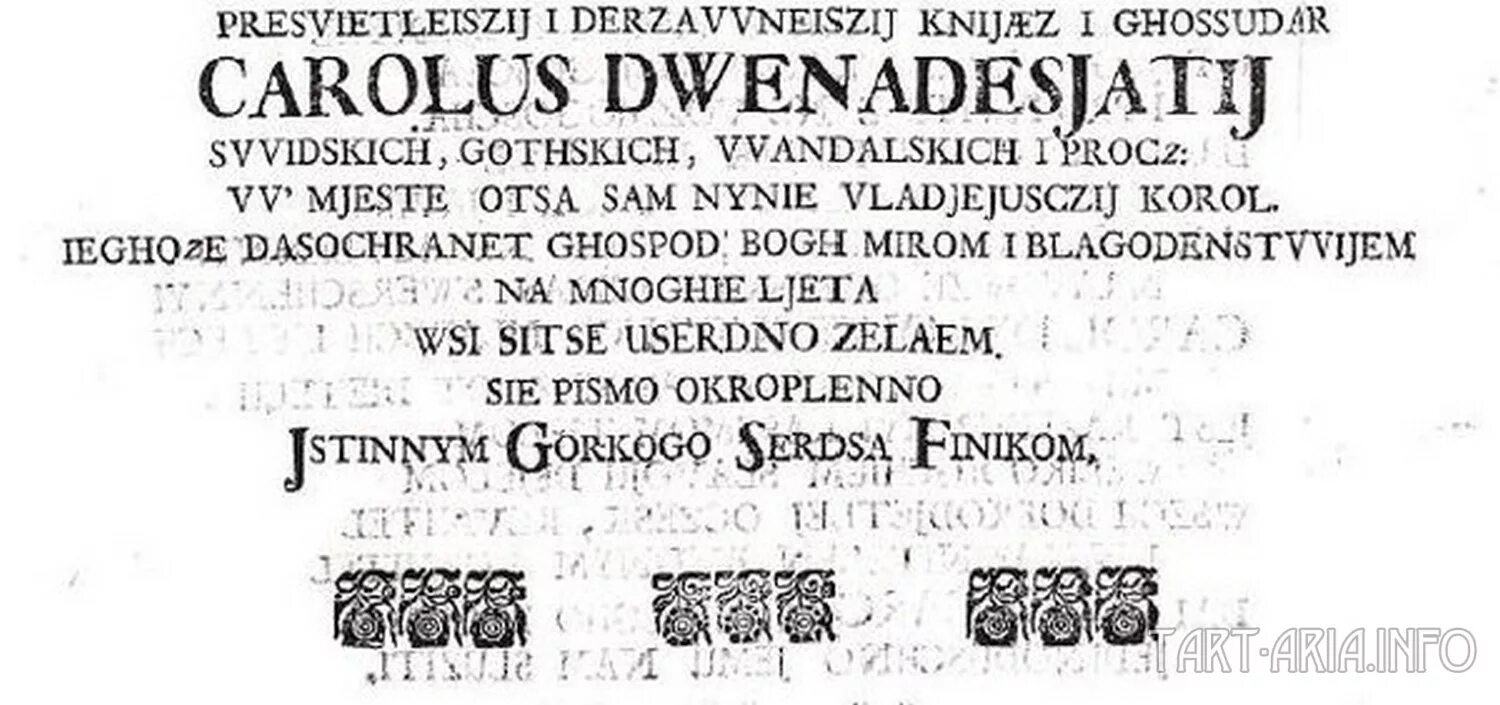 PRESVIETLEISZIJ I DERZAVVNEISZIJ KNIJÆZ I GHOSSUDAR
CAROLUS DWENADESJATIJ
SVVIDSKICH, GOTHSKICH, VVANDALSKICH I PROCZ:
VV' MJESTE OTSA SAM NYNIE VLADJEJUSCZIJ KOROL.
IEGHOZE DASOCHRANET GHOSPOD' BOGH MIROM I BLAGODENSTVVIJEM
NA MNOGHIE LJETA
WSI SITSE USERDNO ZELAEM.
SIE PISMO OKROPLENNO
JSTINNYM GORKOGO SERDSA FINIKOM,
TART-ARIA.INFO